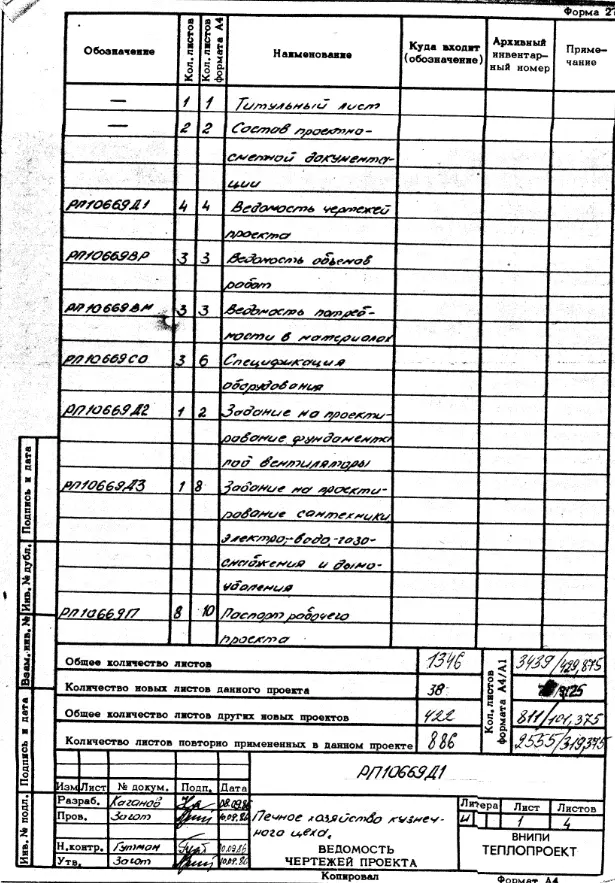 Форма 2
Обозначение Кол. листов Кол. листов формата А4 Наименование Куда входит (обозначение) Архивный инвентарный номер Примечание
— 1 1 Титульный лист
— 2 2 Состав проектно-
сметной документа-
ции
РП10669Д1 4 4 Ведомость чертежей
проекта
РП10669ВР 3 3 Ведомость объемов
работ
РП10669ВМ 3 3 Ведомость потреб-
ности в материалах
РП10669СО 3 6 Спецификация
оборудования
РП10669Д2 1 2 Задание на проекти-
рование фундамента
под вентиляторы
РП10669Д3 1 8 Задание на проекти-
рование сантехники,
электро-водо-газо-
снабжения и дымо-
удаления
РП10669П 8 10 Паспорт рабочего
проекта
Общее количество листов 1346 Кол. листов формата А4/А1 3439/429,875
Количество новых листов данного проекта 38
Общее количество листов других новых проектов 422 811/101,375
Количество листов повторно примененных в данном проекте 886 2555/319,375
РП10669Д1
Изм Лист № докум. Подп. Дата
Разраб. Каганов 08.09.86
Пров. Загот 10.09.86
Н.контр. Гутман 10.09.86
Утв. Загот 10.09.86
Печное хозяйство кузнеч-
ного цеха.
ВЕДОМОСТЬ
ЧЕРТЕЖЕЙ ПРОЕКТА
Литера Лист Листов
И 1 4
ВНИПИ
ТЕПЛОПРОЕКТ
Копировал Формат А4
Подпись и дата
Инв. № дубл.
Взам. инв. №
Подпись и дата
Инв. № подл.